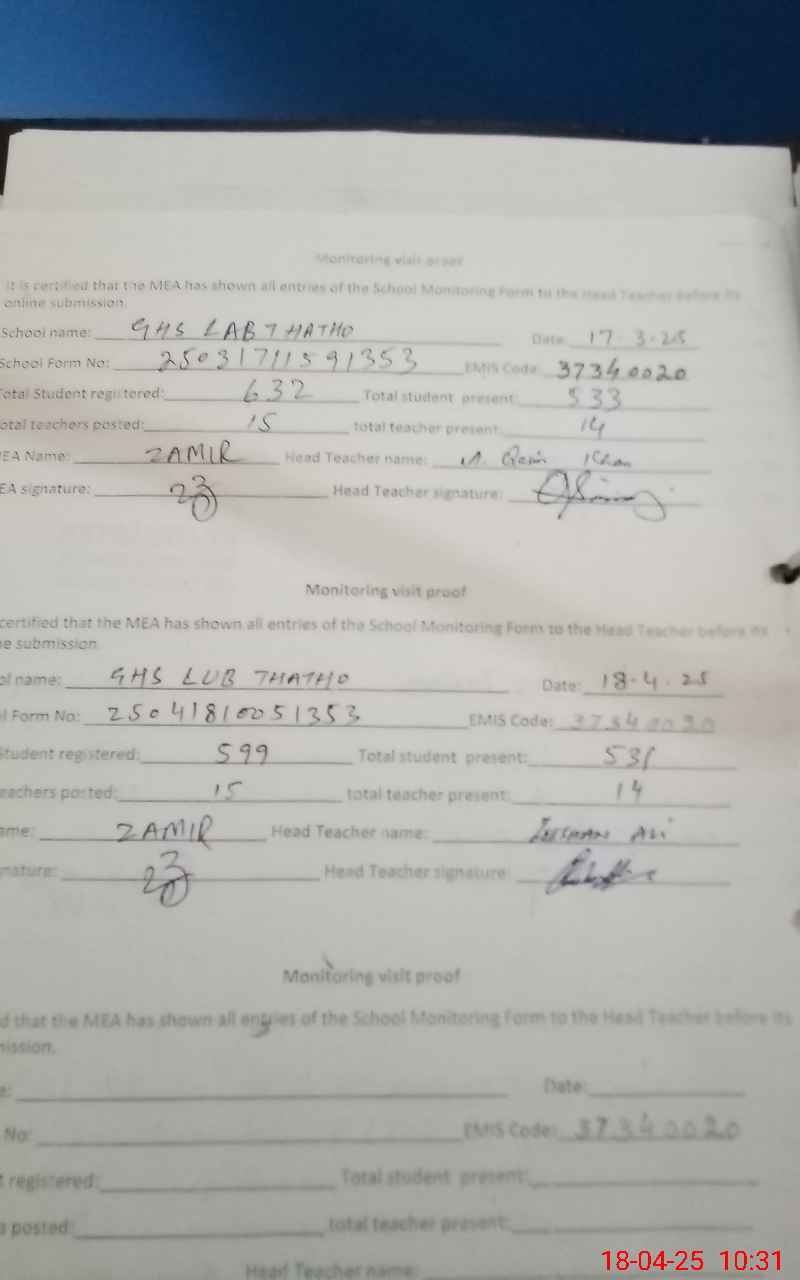 Monitoring visit proof
It is certified that the MEA has shown all entries of the School Monitoring Form to the Head Teacher before its
online submission.
School name: GHS LAB THATHO Date: 17-3-25
School Form No: 25031711591353 EMIS Code: 37340020
Total Student registered: 632 Total student present: 533
otal teachers posted: 15 total teacher present: 14
EA Name: ZAMIR Head Teacher name: Khan
EA signature: Head Teacher signature:
Monitoring visit proof
certified that the MEA has shown all entries of the School Monitoring Form to the Head Teacher before its
e submission.
ol name: GHS LUB THATHO Date: 18-4-25
l Form No: 25041810051353 EMIS Code: 37340020
Student registered: 599 Total student present: 531
eachers posted: 15 total teacher present: 14
ame: ZAMIR Head Teacher name: ALi
nature: Head Teacher signature:
Monitoring visit proof
d that the MEA has shown all entries of the School Monitoring Form to the Head Teacher before its
mission.
e: Date:
No: EMIS Code: 37340020
t registered: Total student present:
s posted: total teacher present:
Head Teacher name:
18-04-25 10:31